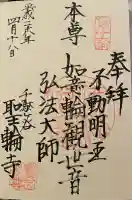 奉拝
不動明王
本尊 如意輪観世音
弘法大師
千駄ヶ谷
聖輪寺
四月十八日